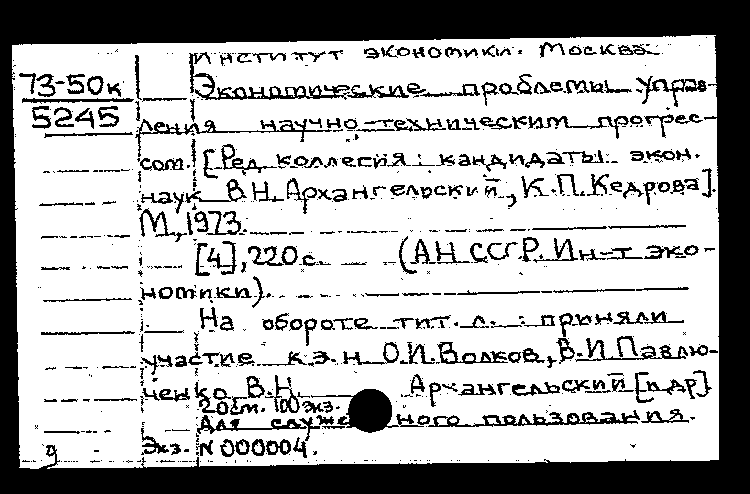 Институт экономики. Москва.
73-50к
Экономические проблемы управ-
5245
ления научно-техническим прогрес-
сом. [Ред. коллегия: кандидаты экон.
наук В.Н. Архангельский, К.П. Кедрова].
М., 1973.
[4], 220 с. (АН СССР. Ин-т эко-
номики).
На обороте тит. л.: приняли
участие к.э.н О.И. Волков, В.И Павлю-
ченко, В.Н. Архангельский [и др]
20 см. 100 экз.
Для служе ного пользования.
Экз. N 000004.